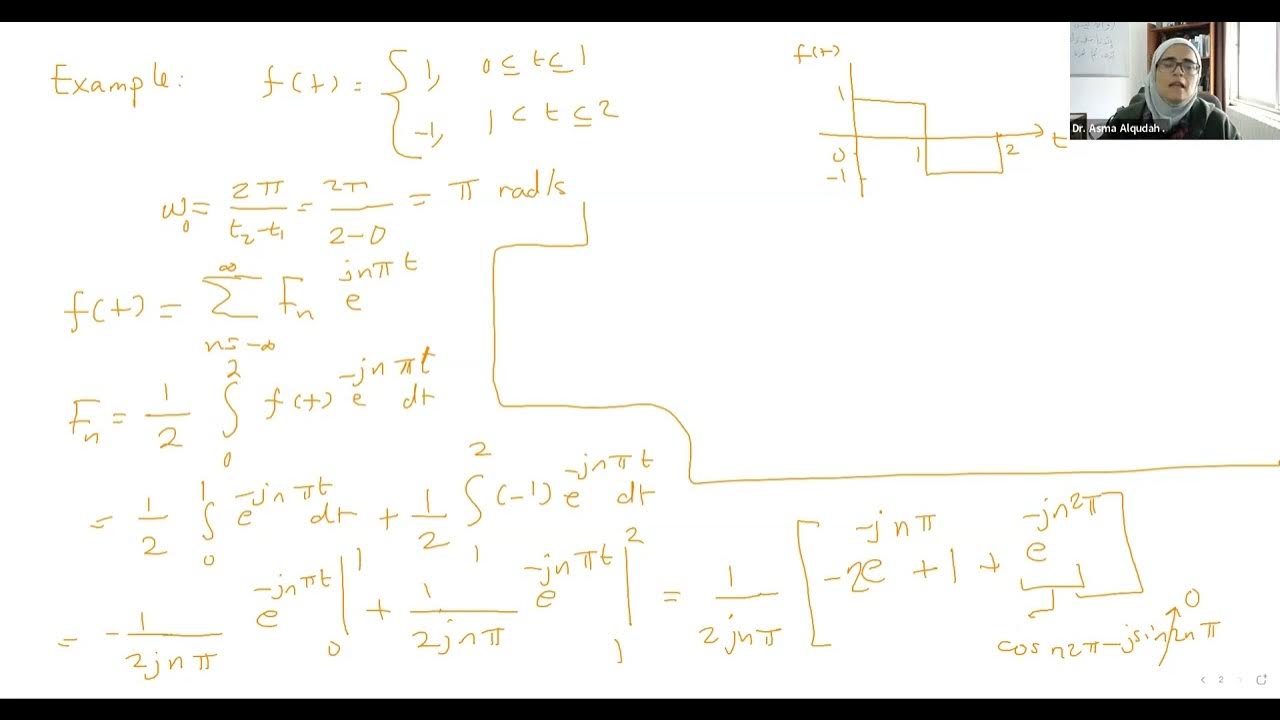 Example: f(t) = { 1, 0 ≤ t ≤ 1
-1, 1 < t ≤ 2
f(t)
1
0
-1
1
2
t
Dr. Asma Alqudah .
ω₀ = 2π / (t₂ - t₁) = 2π / (2 - 0) = π rad/s
f(t) = ∑_{n=-∞}^{∞} Fₙ e^{jnπt}
Fₙ = 1/2 ∫₀² f(t) e^{-jnπt} dt
= 1/2 ∫₀¹ e^{-jnπt} dt + 1/2 ∫₁² (-1) e^{-jnπt} dt
= -1/(2jnπ) e^{-jnπt} |₀¹ + 1/(2jnπ) e^{-jnπt} |₁² = 1/(2jnπ) [ -2e^{-jnπ} + 1 + e^{-jn2π} ]
cos n2π - j sin 2nπ → 0
2